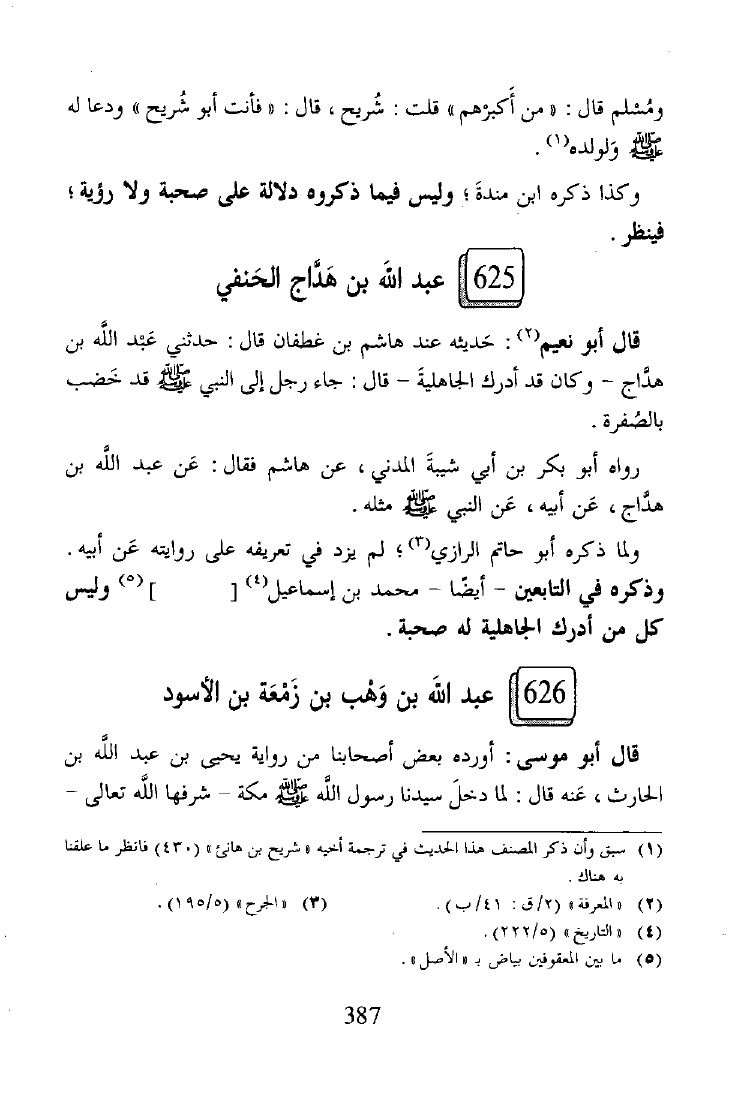 ومُسْلم قال : « من أَكبرْهم » قلت : شُريح ، قال : « فأنت أبو شُريح » ودعا له
ﷺ وَلولده(١) .
وكذا ذكره ابن مندةَ ؛ وليس فيما ذكروه دلالة على صحبة ولا رؤية ؛
فينظر .
625 عبد اللَّه بن هَدَّاج الحَنفي
قال أبو نعيم(٢) : حَديثه عند هاشم بن غطفان قال : حدثني عَبْد اللَّه بن
هدَّاج - وكان قد أدرك الجاهليةَ - قال : جاء رجل إلى النبي ﷺ قد خَضب
بالصُفرة .
رواه أبو بكر بن أبي شيبةَ المدني ، عن هاشم فقال : عَن عبد اللَّه بن
هدَّاج ، عَن أبيه ، عَن النبي ﷺ مثله .
ولما ذكره أبو حاتم الرازي(٣) ؛ لم يزد في تعريفه على روايته عَن أبيه .
وذكره في التابعين - أيضًا - محمد بن إسماعيل(٤) [ ](٥) وليس
كل من أدرك الجاهلية له صحبة .
626 عبد اللَّه بن وَهْب بن زَمْعَة بن الأسود
قال أبو موسى : أورده بعض أصحابنا من رواية يحيى بن عبد اللَّه بن
الحارث ، عَنه قال : لما دخلَ سيدنا رسول اللَّه ﷺ مكة - شرفها اللَّه تعالى -
(١) سبق وأن ذكر المصنف هذا الحديث في ترجمة أخيه « شريح بن هانئ » (٤٣٠) فانظر ما علقنا
به هناك .
(٢) « المعرفة » (٢/ق : ٤١/ب) . (٣) « الجرح » (١٩٥/٥) .
(٤) « التاريخ » (٢٢٢/٥) .
(٥) ما بين المعقوفين بياض بـ « الأصل » .
387